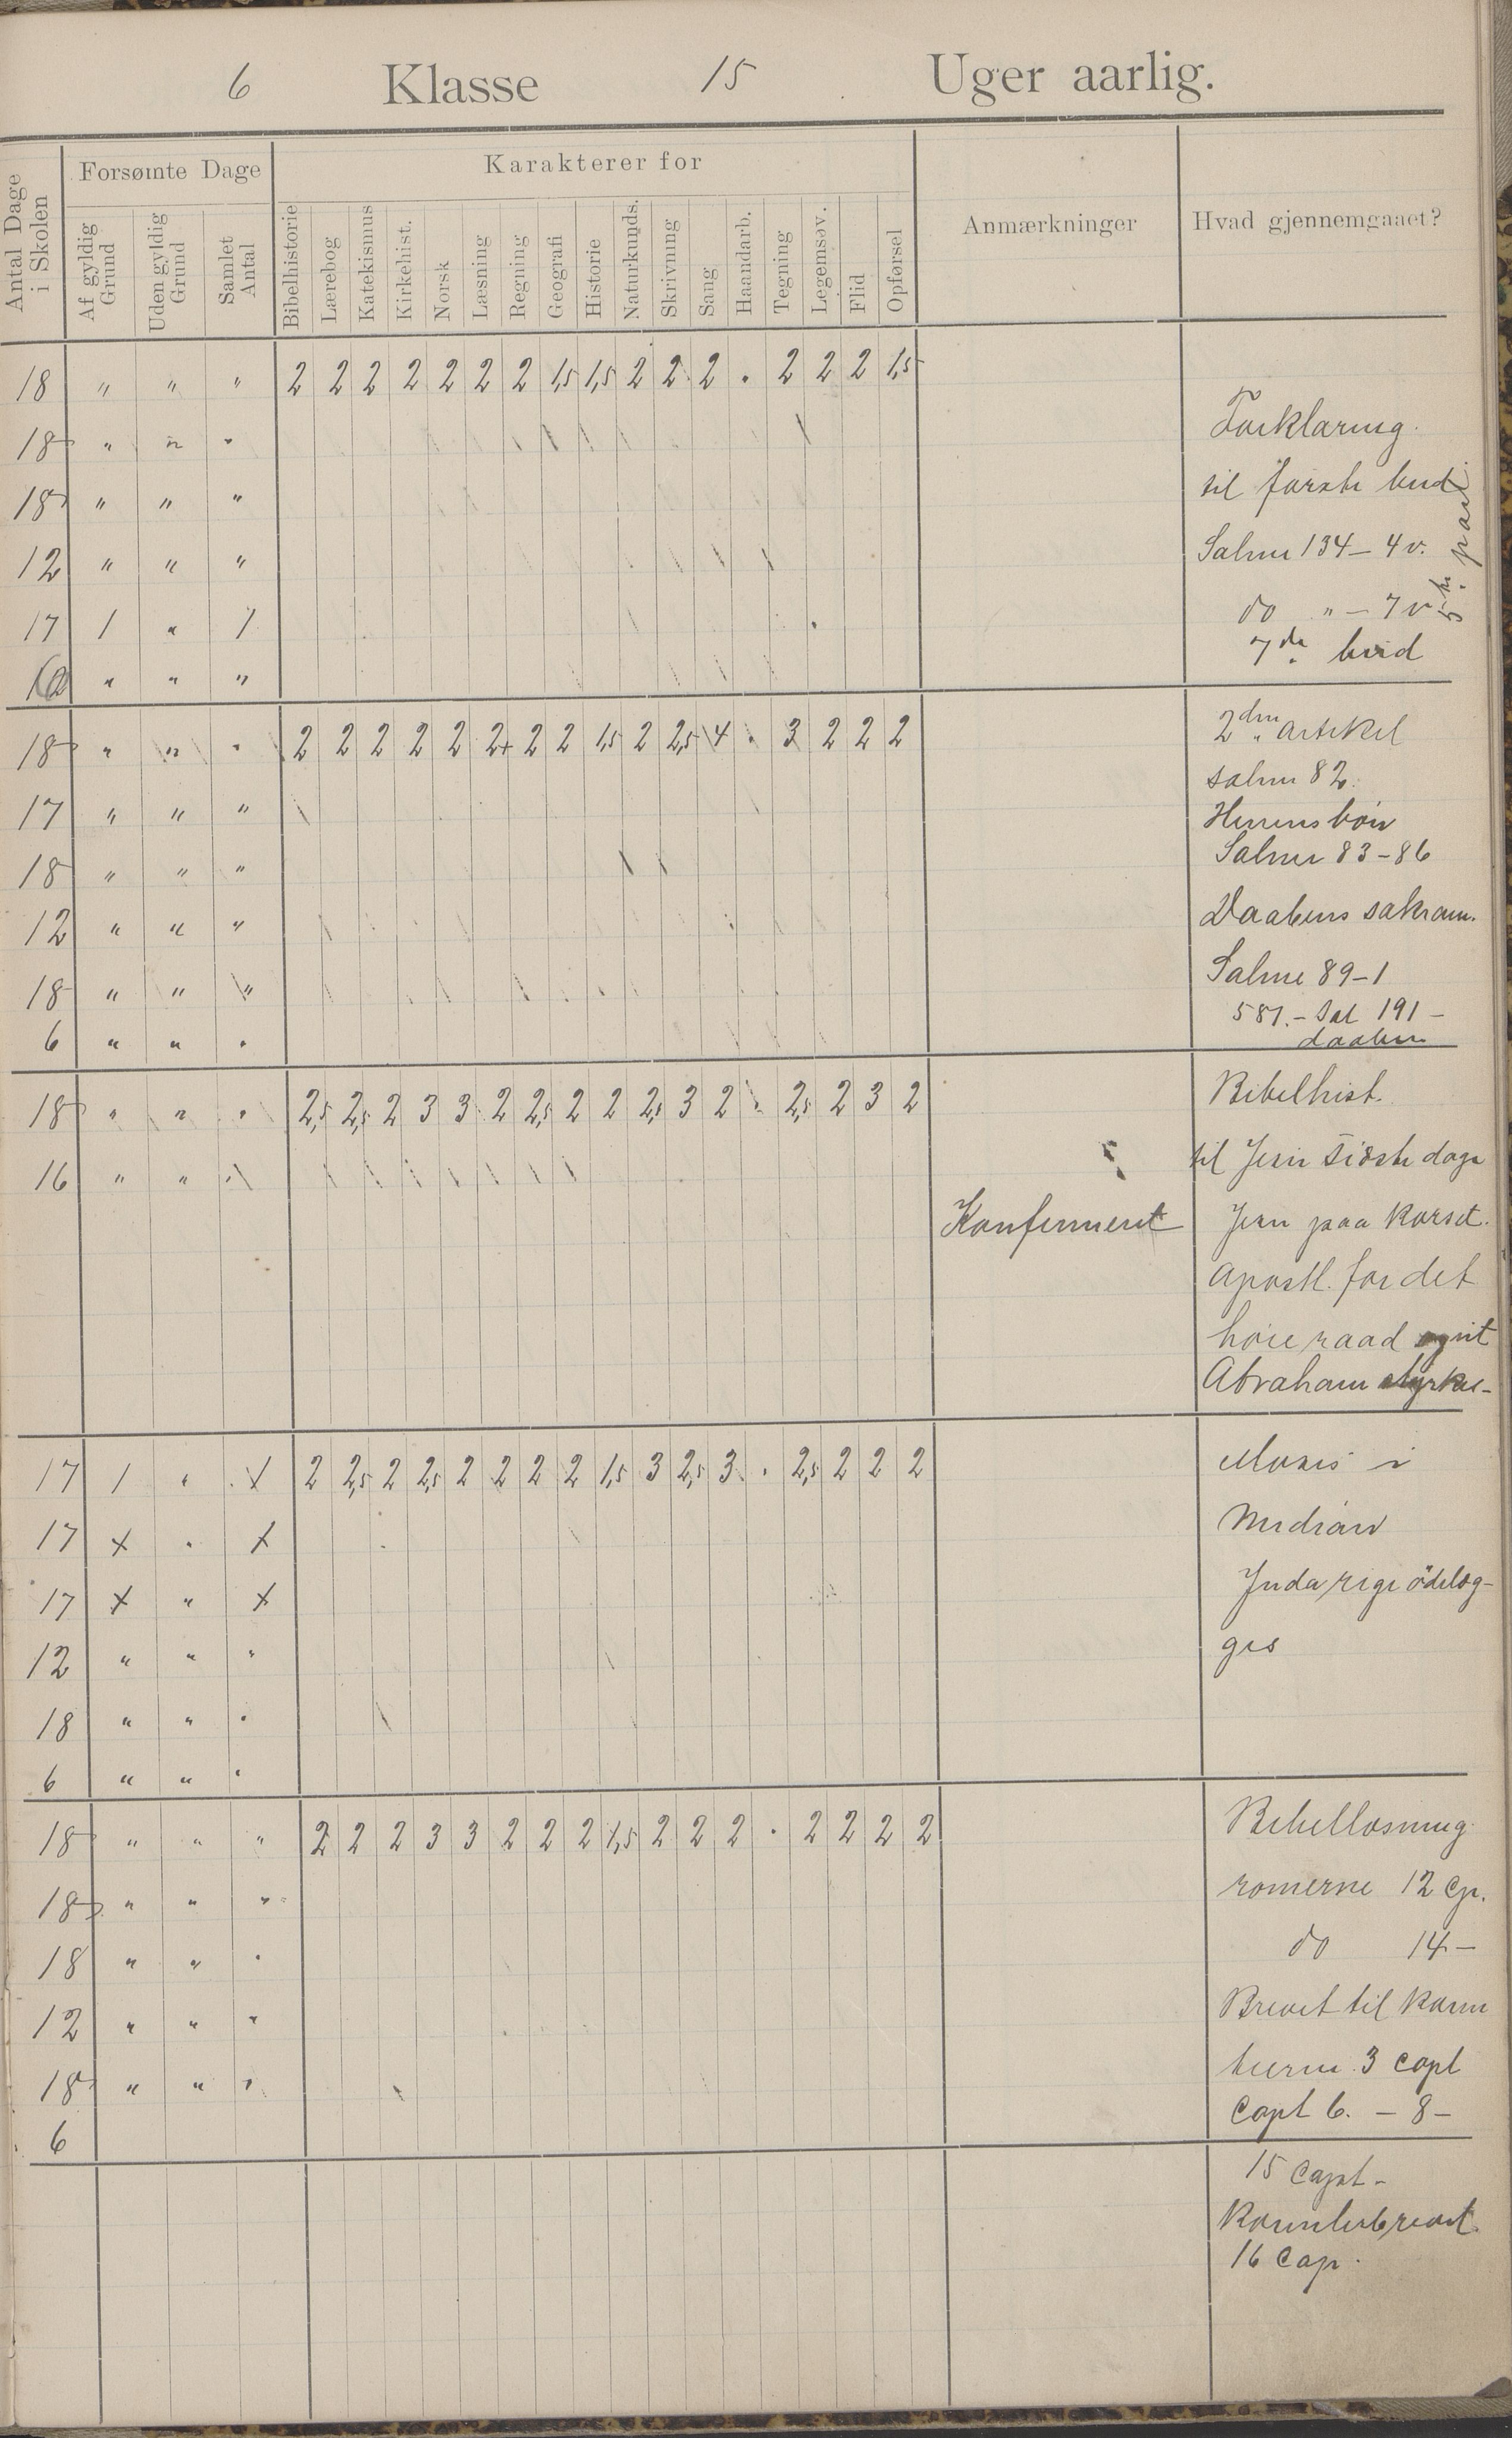 6 Klasse 15 Uger aarlig.
Antal Dage i Skolen
Forsømte Dage
Af gyldig Grund
Uden gyldig Grund
Samlet Antal
Karakterer for
Bibelhistorie
Lærebog
Katekismus
Kirkehist.
Norsk
Læsning
Regning
Geografi
Historie
Naturkunds.
Skrivning
Sang
Haandarb.
Tegning
Legemsøv.
Flid
Opførsel
Anmærkninger
Hvad gjennemgaaet?
18 " " " 2 2 2 2 2 2 2 1,5 1,5 2 2 2 . 2 2 2 1,5
18 " " " Forklaring.
18 " " " til første bud
12 " " " Salme 134 – 4 v.
17 1 " 1 do " – 7 v
" " " 7de bud
5te par
18 " " " 2 2 2 2 2 2+ 2 2 1,5 2 2,5 4 . 3 2 2 2 2den artikel
salme 82.
17 " " " Herrens bøn
18 " " " Salmer 83–86
12 " " " Daabens sakram.
18 " " " Salme 89–1
6 " " " 581.– Sal 191 –
daaben
18 " " " 2,5 2,5 2 3 3 2 2,5 2 2 2,5 3 2 . 2,5 2 3 2 Bibelhist.
16 " " " til Jesu sidste dage
Konfirmert Jesu paa korset.
Apostl. for det
høie raad
Abraham
17 1 " 1 2 2,5 2 2,5 2 2 2 2 1,5 3 2,5 3 . 2,5 2 2 2 Moses i
17 + " + Midian
17 + " + Juda rige ödelæg-
12 " " " ges
18 " " "
6 " " "
18 " " " 2 2 2 3 3 2 2 2 1,5 2 2 2 . 2 2 2 2 Bibellæsning.
18 " " " romerne 12 Cp.
18 " " " do 14 –
12 " " " Brevet til Korin
18 " " " tierne 3 Capt
6 Capt 6. – 8 –
15 Capt –
Korinterbrevet.
16 Cap.